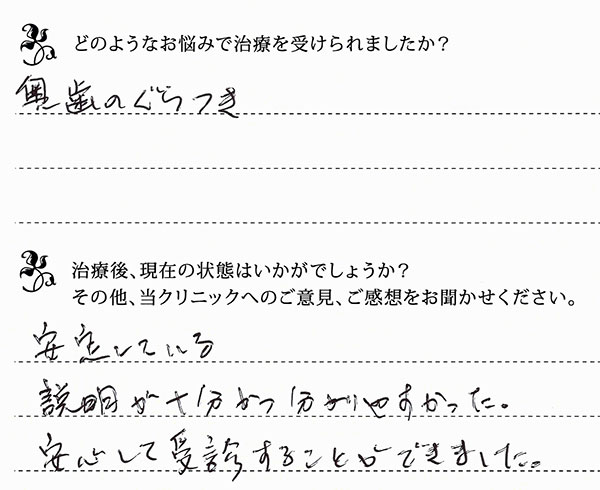 どのようなお悩みで治療を受けられましたか？
奥歯のぐらつき
治療後、現在の状態はいかがでしょうか？
その他、当クリニックへのご意見、ご感想をお聞かせください。
安定している
説明が十分かつ分かりやすかった。
安心して受診することができました。